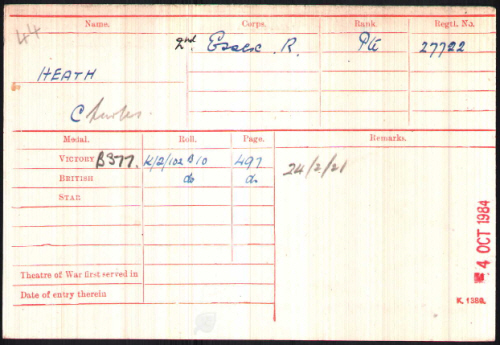 44
Name. Corps. Rank. Regtl. No.
2nd. Essex. R. Pte 27722
HEATH
Charles.
Medal. Roll. Page. Remarks.
VICTORY B377. K/2/102 B10 497 24/2/21
BRITISH do do.
STAR
Theatre of War first served in
Date of entry therein
4 OCT 1984
K. 1380.